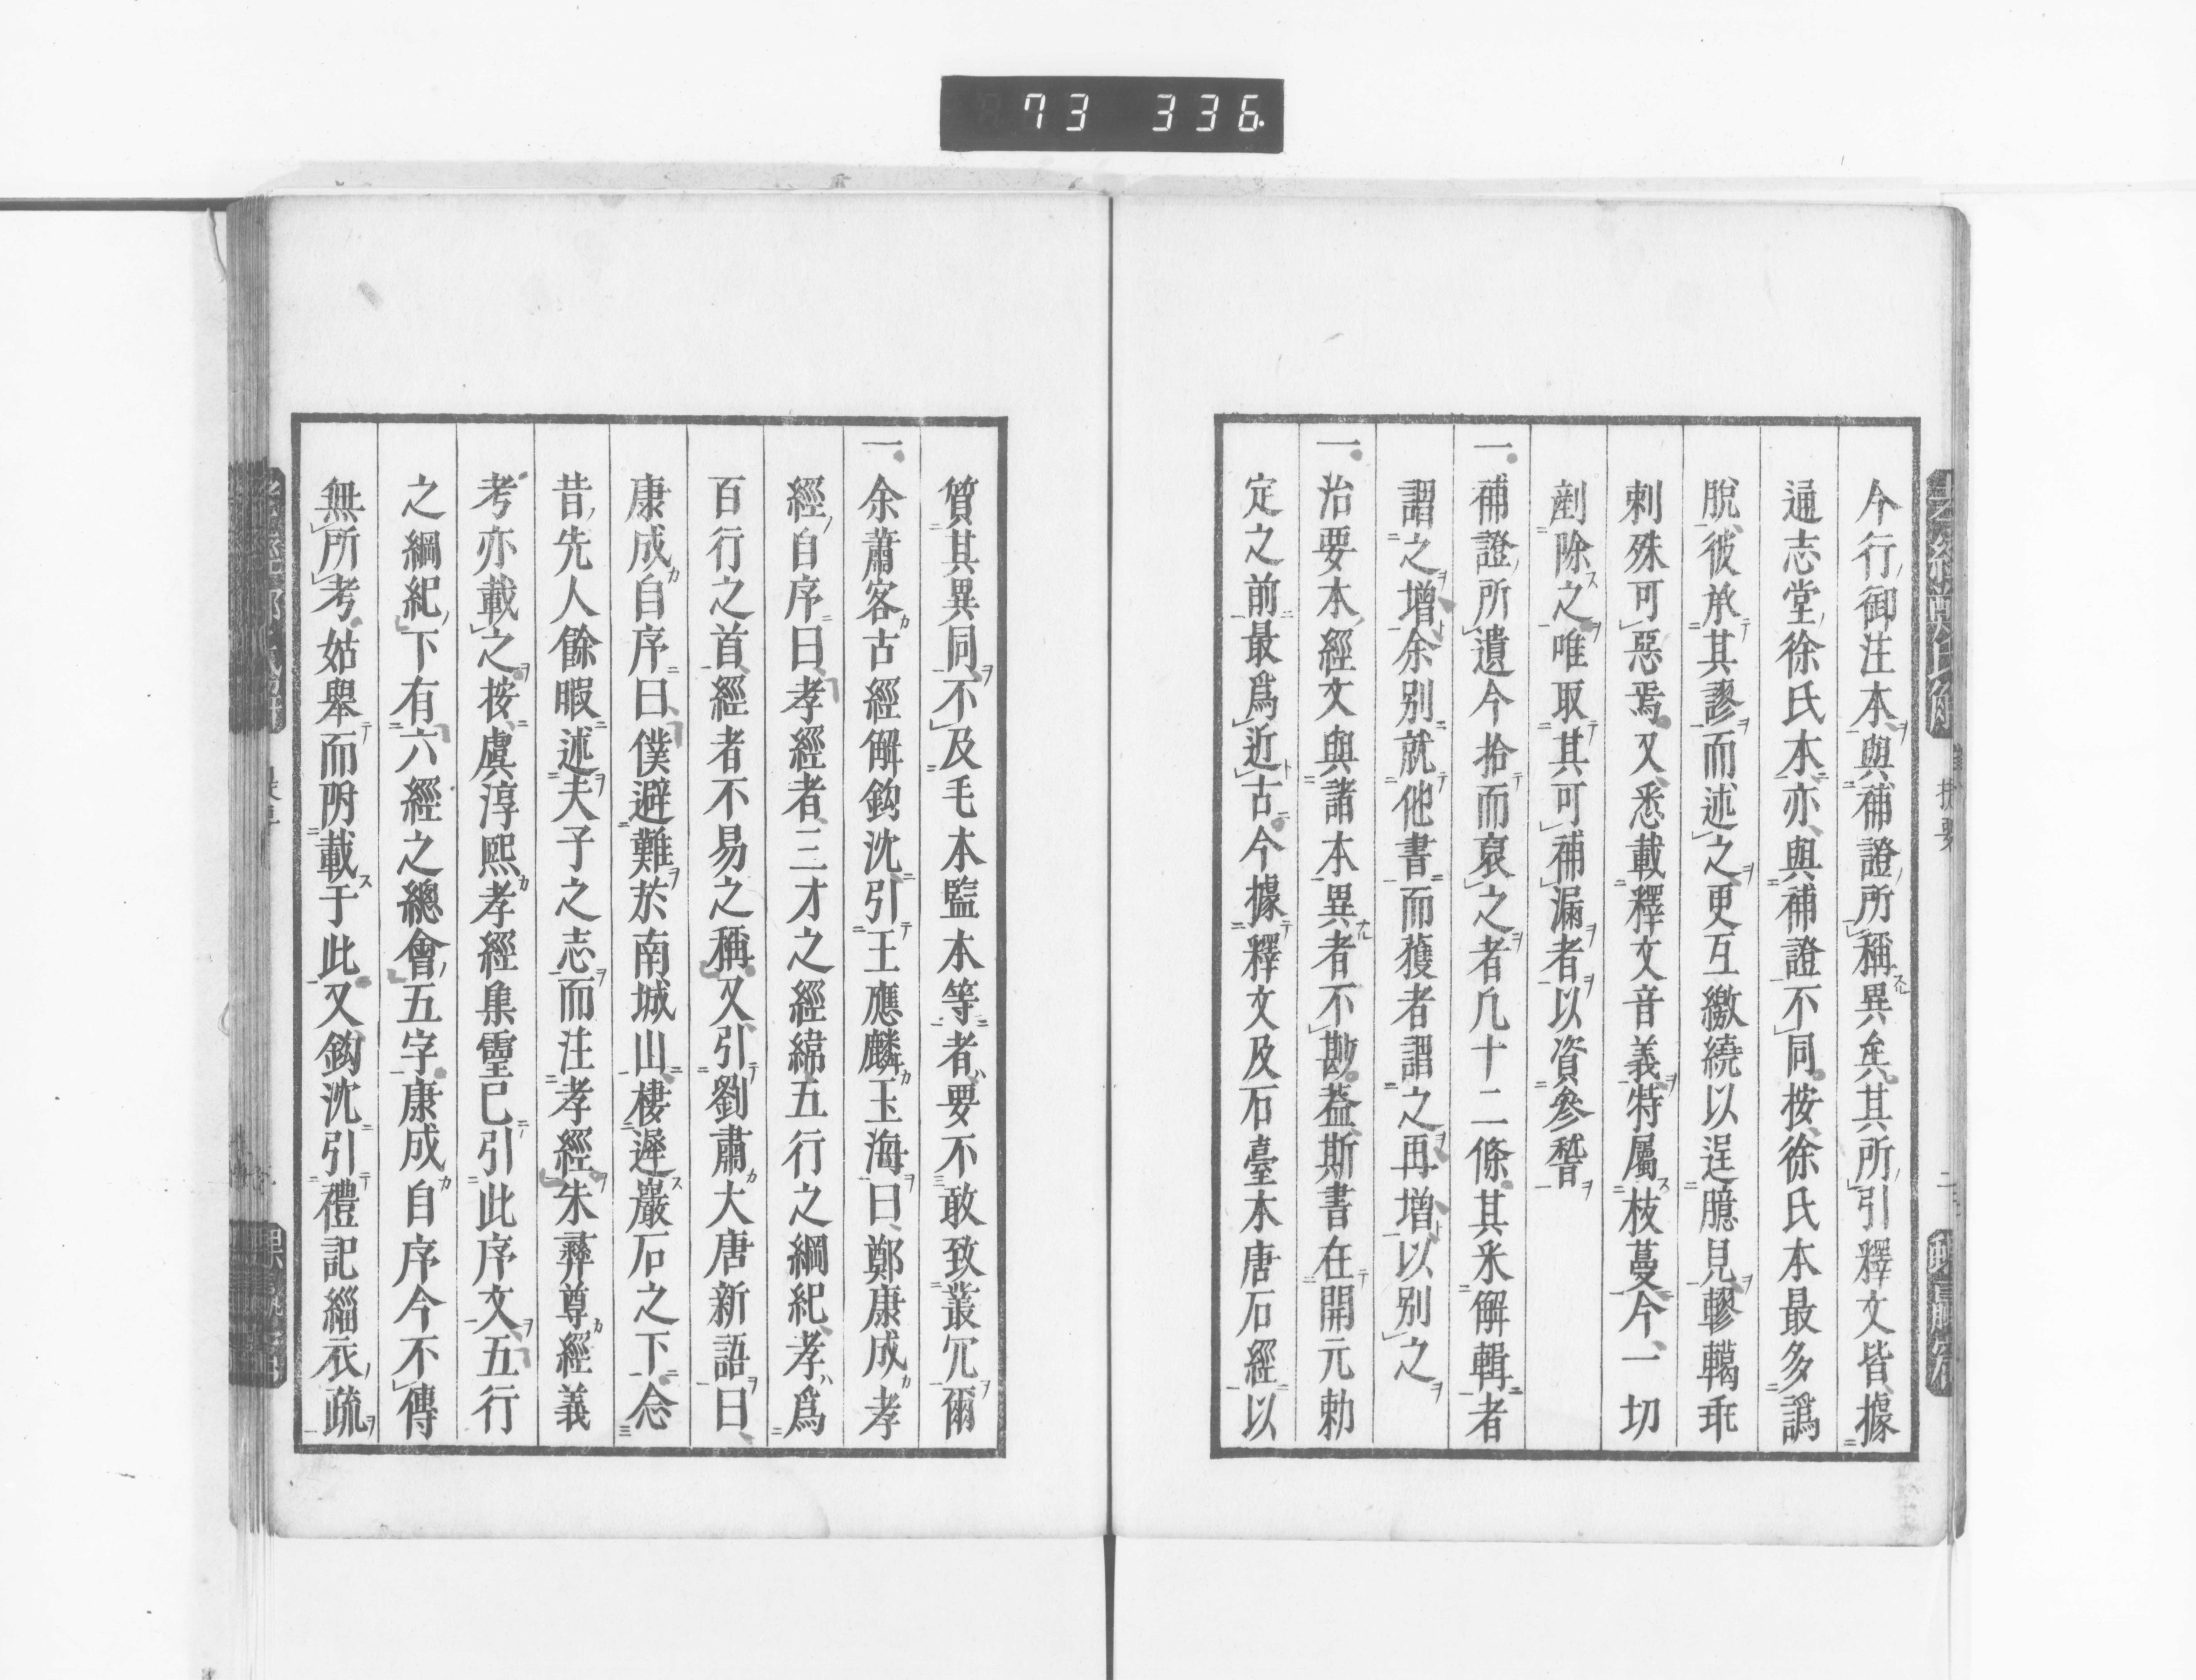 73 336
今行御注本與補證所稱異矣其所引釋文皆據
通志堂徐氏本亦與補證不同按徐氏本最多譌
脫彼承其謬而述之更互繳繞以逞臆見轇轕乖
剌殊可惡焉又悉載釋文音義特屬枝蔓今一切
剷除之唯取其可補漏者以資參稽
一補證所遺今拾而裒之者凡十二條其采解輯者
謂之增余別就他書而獲者謂之再增以別之
一治要本經文與諸本異者不勘蓋斯書在開元勅
定之前最爲近古今據釋文及石臺本唐石經以
質其異同不及毛本監本等者要不敢致叢冗爾
一余蕭客古經解鈎沈引王應麟玉海曰鄭康成孝
經自序曰孝經者三才之經緯五行之綱紀孝爲
百行之首經者不易之稱又引劉肅大唐新語曰
康成自序曰僕避難於南城山棲遲巖石之下念
昔先人餘暇述夫子之志而注孝經朱彝尊經義
考亦載之按虞淳熙孝經集靈已引此序文五行
之綱紀下有六經之總會五字康成自序今不傳
無所考姑舉而附載于此又鈎沈引禮記緇衣疏